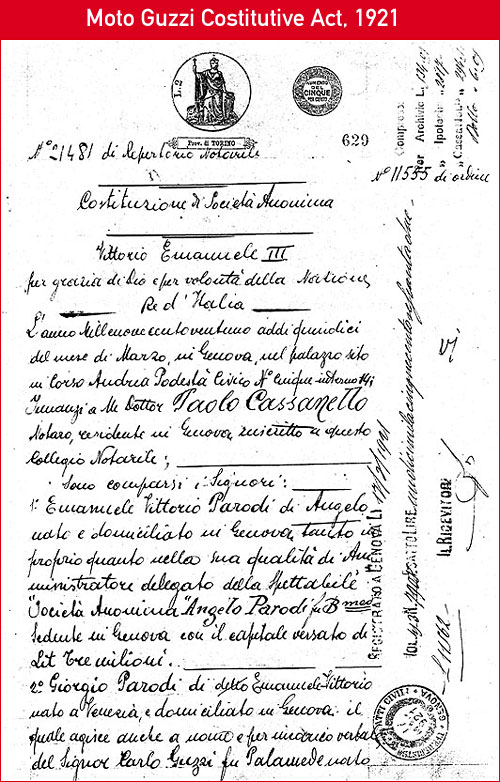 Moto Guzzi Costitutive Act, 1921
L. 2
AUMENTO DEL CINQUE PER CENTO
Prov. di TORINO
629
N° 21481 di Repertorio Notarile
N° 11555 di ordine
Costituzione di Società Anonima
Vittorio Emanuele III
per grazia di Dio e per volontà della Nazione
Re d'Italia
L'anno Millenovecentoventuno addì quindici
del mese di Marzo, in Genova, nel palazzo sito
in Corso Andrea Podestà Civico N° Cinque interno 14;
Innanzi a Me Dottor Paolo Cassanello
Notaro, residente in Genova inscritto a questo
Collegio Notarile;
Sono comparsi i Signori:
1° Emanuele Vittorio Parodi di Angelo,
nato e domiciliato in Genova tanto in
proprio quanto nella sua qualità di Am
ministratore delegato della Spettabile
"Società Anonima "Angelo Parodi fu B
sedente in Genova con il capitale versato di
Lit Tre milioni.
2° Giorgio Parodi di detto Emanuele Vittorio
nato a Venezia, e domiciliato in Genova: il
quale agisce anche a nome e per incarico verbale
del Signor Carlo Guzzi fu Palamede nato
Compreso:
per Archivio L.
" Ipoteria
"Cassa
Bollo
REGISTRATO A GENOVA LI
ESATTO LIRE
IL RICEVITORE
ATTI CIVILI
GENOVA